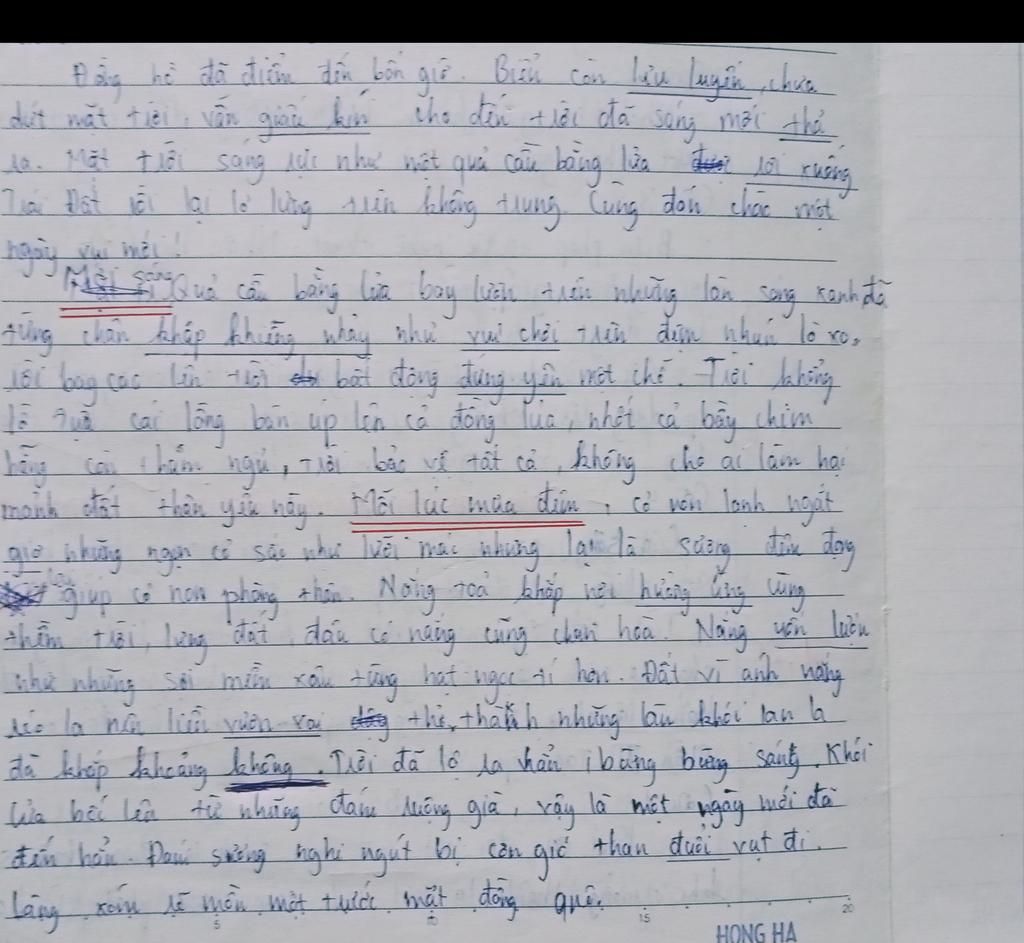 Đồng hồ đã điểm đến bốn giờ. Biển còn lưu luyến, chưa
dứt mặt trời, vẫn giấu kín cho đến trời đã sáng mới thả
ra. Mặt trời sáng rực như một quả cầu bằng lửa rơi xuống
Trái Đất rồi lại lơ lửng trên không trung. Cùng đón chào một
ngày vui mới!
Quả cầu bằng lửa bay lượn trên những làn sóng xanh đã
từng chân khấp khiễng nhảy như vui chơi trên đệm nhún lò xo,
rồi bay lên trời bất động đứng yên một chỗ. Trời khổng
lồ tựa cái lồng bàn úp lên cả đồng lúa, nhốt cả bầy chim
hẵng còn chăm ngủ, trời bảo vệ tất cả, không cho ai làm hại
mảnh đất thân yêu này. Mỗi lúc mùa đến, cỏ non lạnh ngắt
giơ những ngọn cỏ sắc như lưỡi mác nhưng lại là sương đêm đọng
giúp cỏ non phòng thân. Nắng toả khắp nơi hưởng ứng cùng
thềm trời, lưng đất, đâu có nắng cũng chan hoà. Nắng uốn lượn
như những sợi mềm xâu từng hạt ngọc tí hon. Đất vì ánh nắng
réo la nên liền vươn vai thở, thành những làn khói lan la
đà khắp khoảng không. Trời đã ló ra hẳn, bừng sáng. Khói
lửa bốc lên từ những đám ruộng già, vậy là một ngày mới đã
đến hẳn. Đám sương nghi ngút bị cơn gió than đuổi vụt đi.
Làng xóm rõ mồn một trước mặt đồng quê.
5 10 15 20
HONG HA